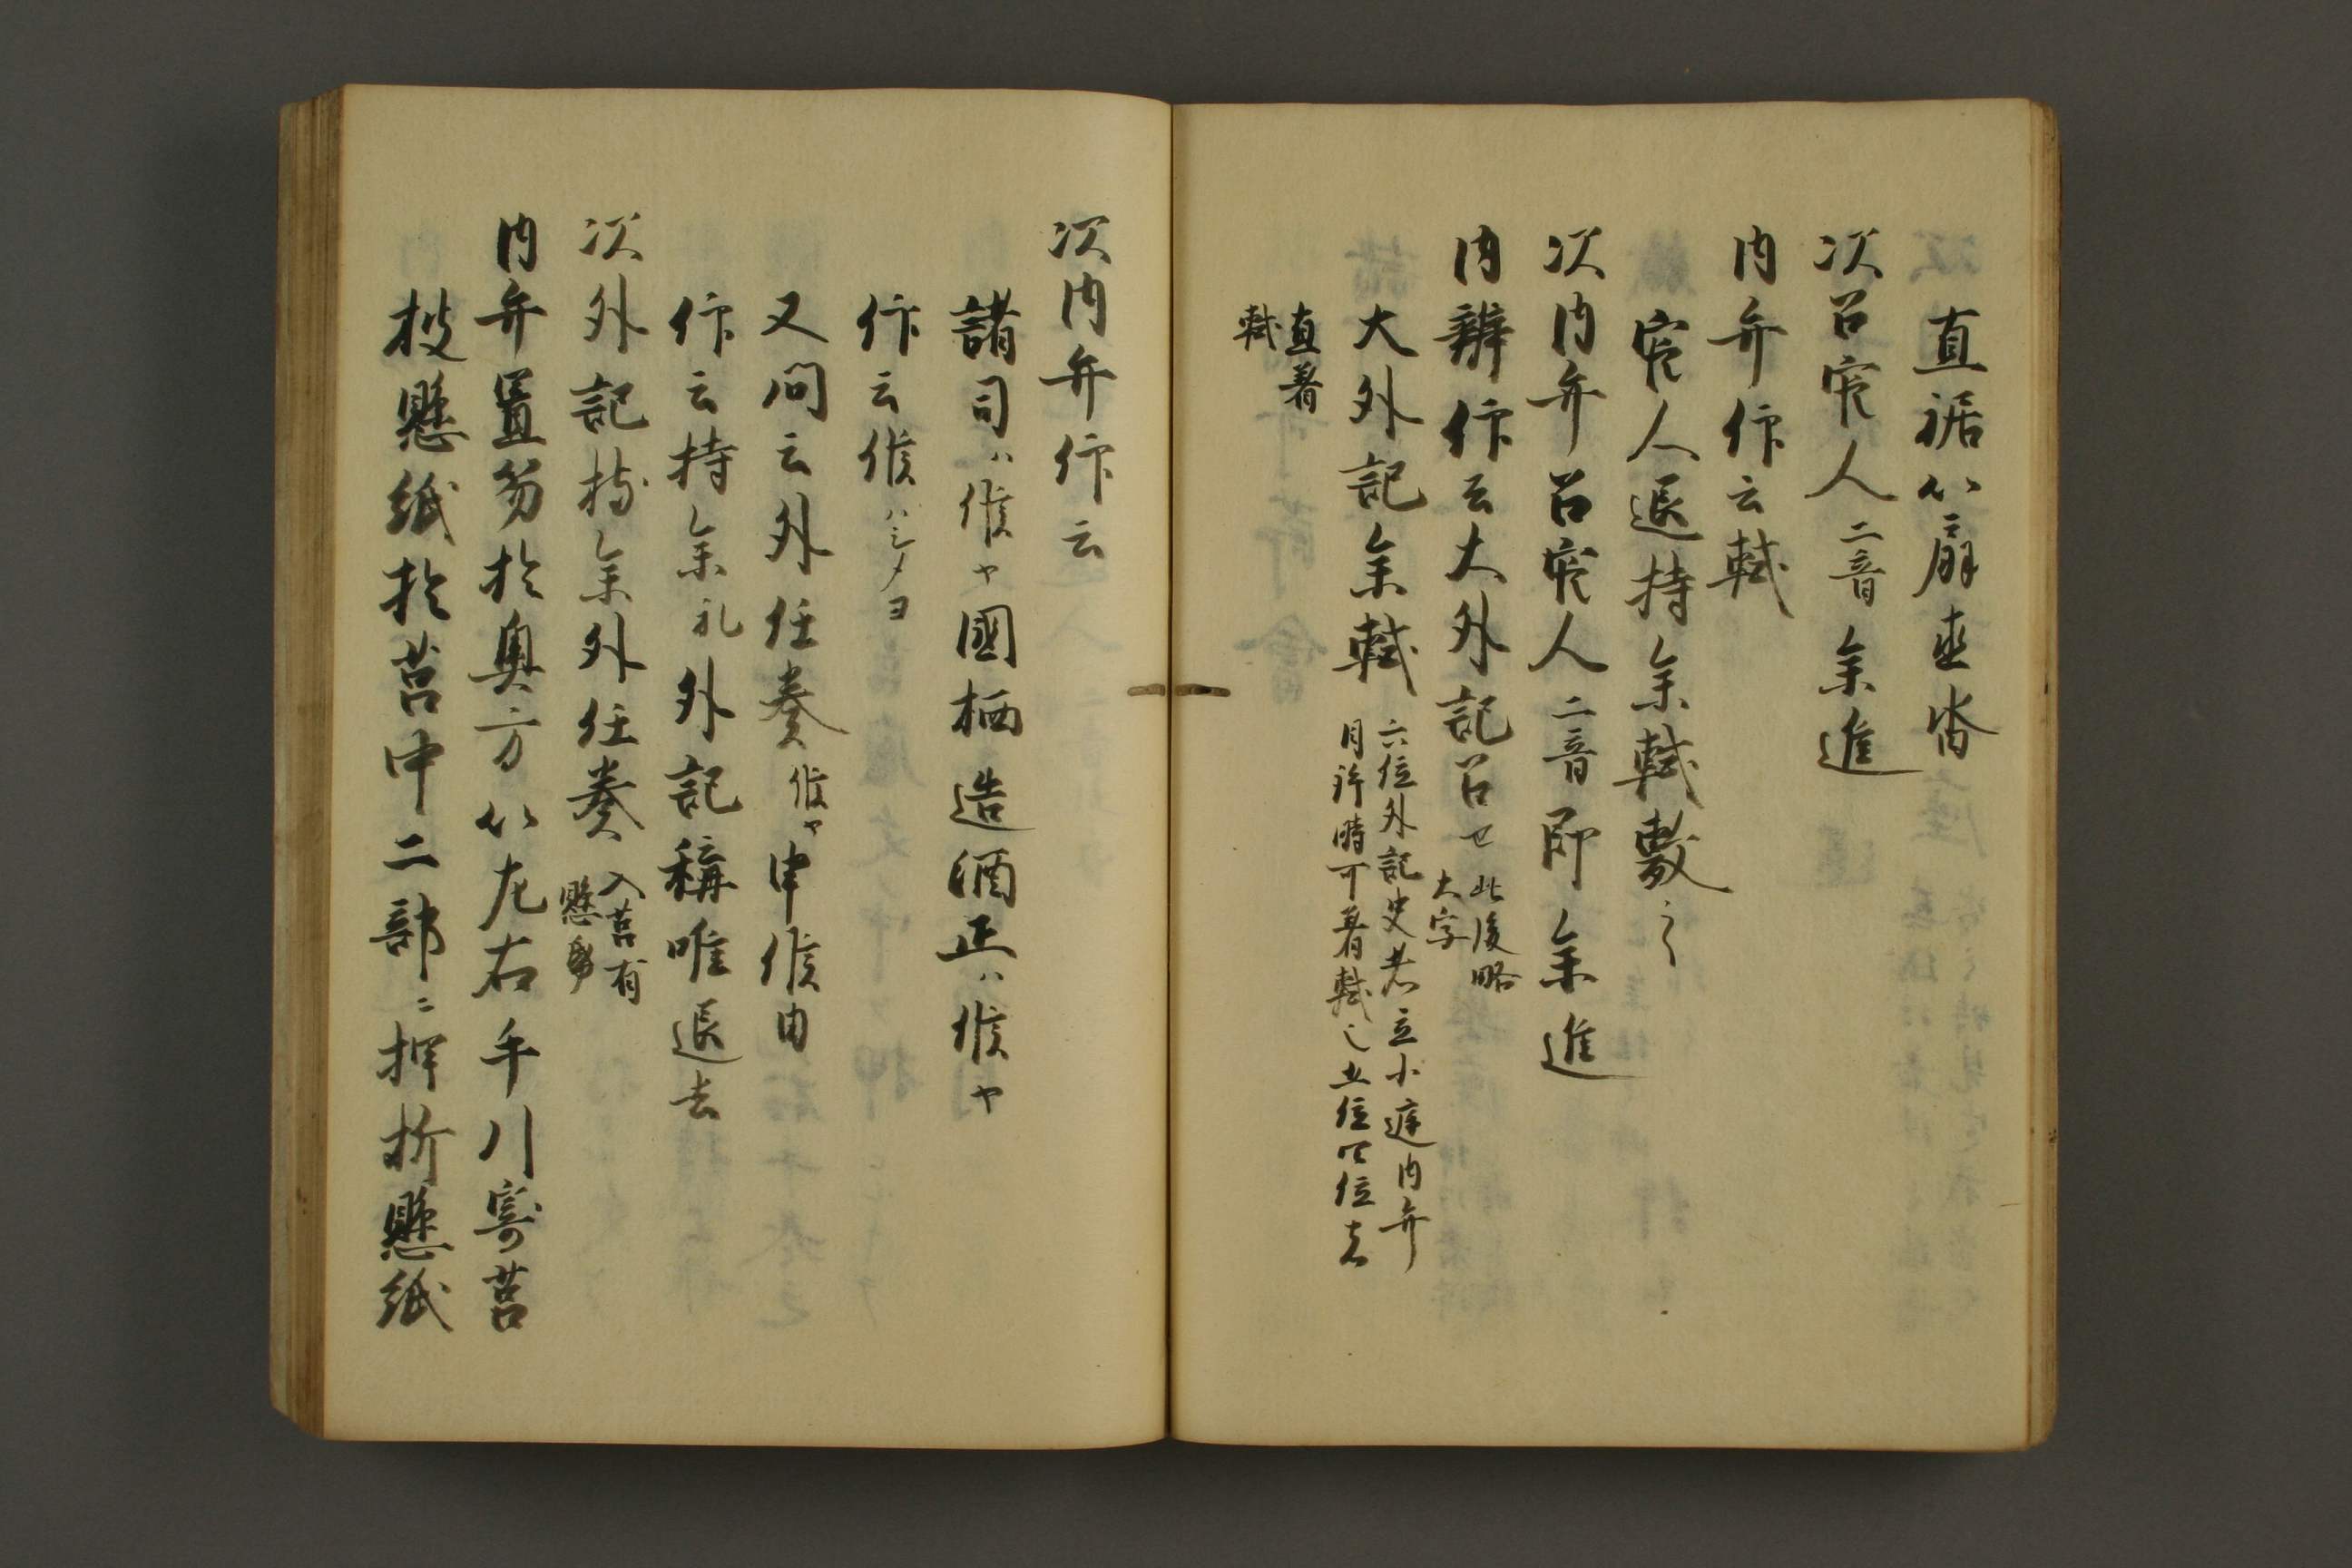 直裾以扇直沓
次召官人二音参進
内弁仰云軾
官人退持参軾敷之
次内弁召官人二音即参進
内辨仰云大外記召セ此後略
大字
大外記参軾六位外記史者立小庭内弁
目許時可着軾也五位四位者
直着
軾
次内弁仰云
諸司ハ候ヤ國栖造酒正ハ候ヤ
仰云候ハシメヨ
又問云外任奏候ヤ申候由
仰云持参礼外記稱唯退去
次外記持参外任奏入莒有
懸紙
内弁置笏於奥方以左右手引寄莒
披懸紙於莒中二部ニ押折懸紙